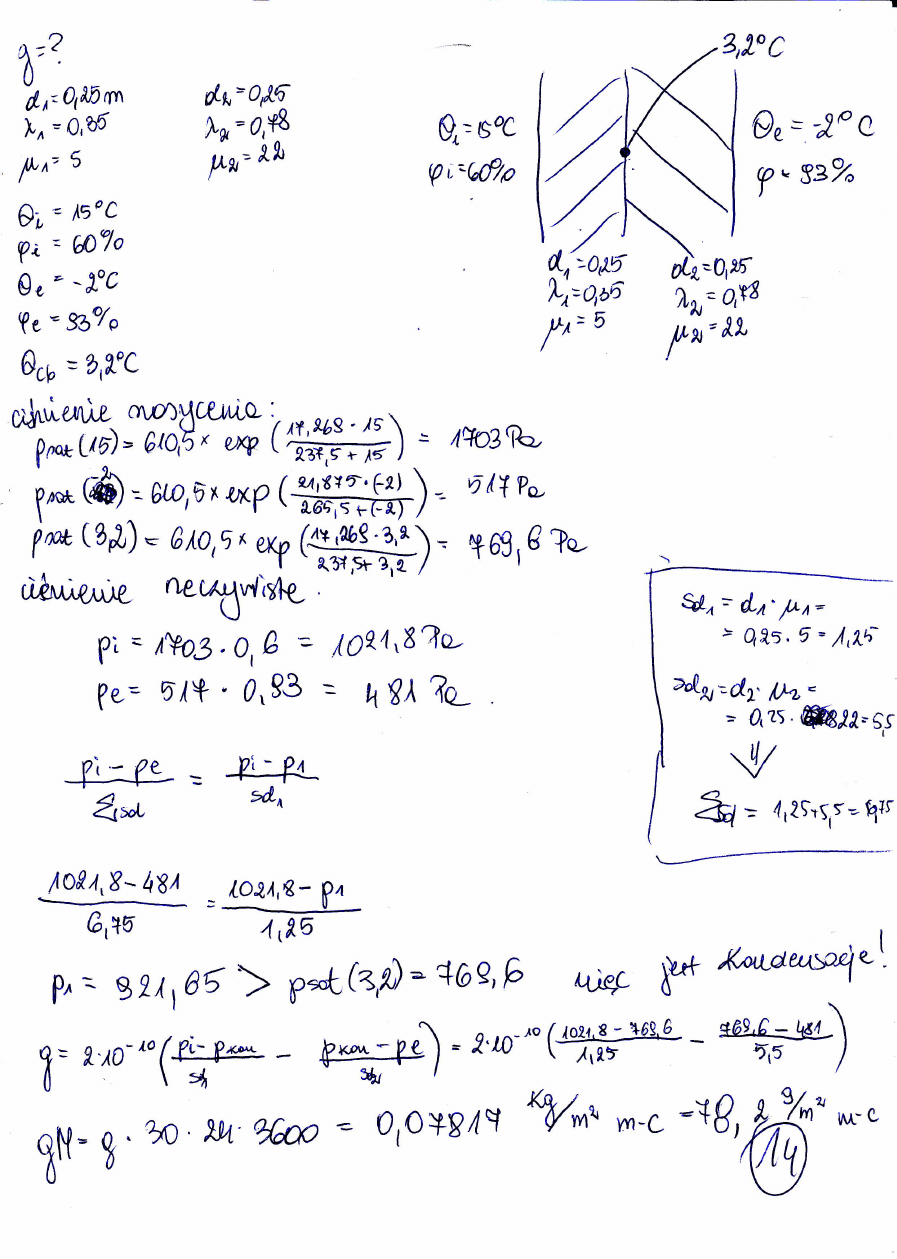 g=?
d₁=0,25m d₂=0,25
λ₁=0,35 λ₂=0,78
μ₁=5 μ₂=22
θi = 15°C
φi = 60%
θe = -2°C
φe = 93%
θcb = 3,2°C
3,2°C
θi=15°C θe=-2°C
φi=60% φ=93%
d₁=0,25 d₂=0,25
λ₁=0,35 λ₂=0,78
μ₁=5 μ₂=22
ciśnienie nasycenia:
psat(15)=610,5 × exp(17,269·15 / 237,5+15) = 1703 Pa
psat(-2)=610,5 × exp(21,875·(-2) / 265,5+(-2)) = 517 Pa
psat(3,2)=610,5 × exp(17,269·3,2 / 237,5+3,2) = 769,6 Pa
ciśnienie rzeczywiste.
pi = 1703·0,6 = 1021,8 Pa
pe = 517·0,93 = 481 Pa.
sd₁ = d₁·μ₁=
= 0,25·5=1,25
sd₂=d₂·μ₂=
= 0,25·22=5,5
⇓
Σsd = 1,25+5,5=6,75
pi-pe / Σsd = pi-p1 / sd₁
1021,8-481 / 6,75 = 1021,8-p1 / 1,25
p1 = 921,65 > psat(3,2)=769,6 więc jest kondensacje!
g = 2·10⁻¹⁰(pi-pkon / sd₁ - pkon-pe / sd₂) = 2·10⁻¹⁰(1021,8-769,6 / 1,25 - 769,6-481 / 5,5)
gM = g·30·24·3600 = 0,07817 kg/m² m-c = 78,2 g/m² m-c
14